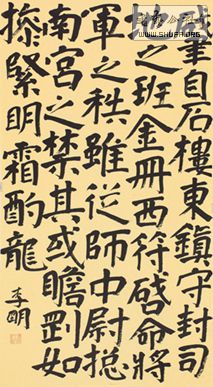 自后樓東鎮守封司
之班金冊西符啓命將
軍之秩雖從師中尉摠
南宮之禁其或瞻罰如
緊明霜酌龍
李明
WWW.SHUFA.ORG